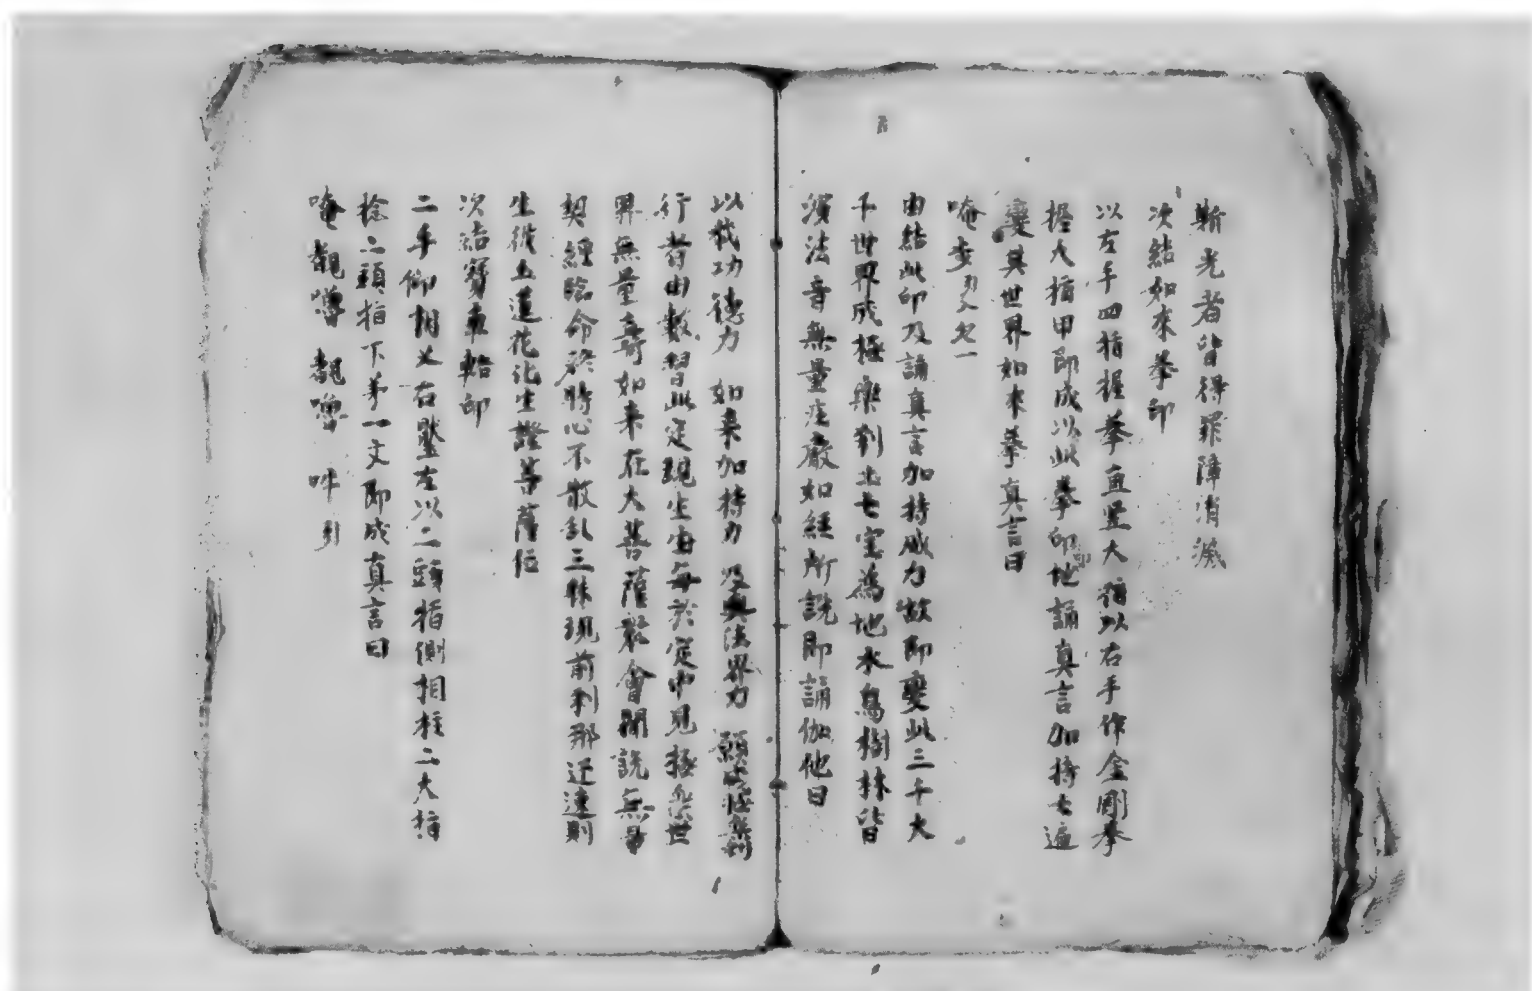 斯光者皆得罪障消滅
次結如來拳印
以左手四指握拳直竪大指以右手作金剛拳
握大指甲即成以此拳印地誦真言加持七遍
變其世界如來拳真言曰
唵步引入欠一
由結此印及誦真言加持威力故即變此三千大
千世界成極樂剎土七宝為地水鳥樹林皆
演法音無量庄嚴如經所說即誦伽他曰
以我功德力 如来加持力 及與法界力 願成極樂剎
行者由數習此定現生每於定中見極樂世
界無量壽如来在大菩薩衆會聞說無量
契經臨命終時心不散乱三昧現前刹那迅速則
生彼土蓮花化生證菩薩位
次結寳車輅印
二手仰相叉右壓左以二頭指側相柱二大指
捻二頭指下苐一文即成真言曰
唵覩嚕覩嚕吽引